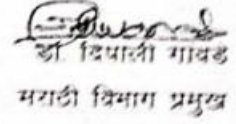 डॉ. दिपाली गावड
मराठी विभाग प्रमुख